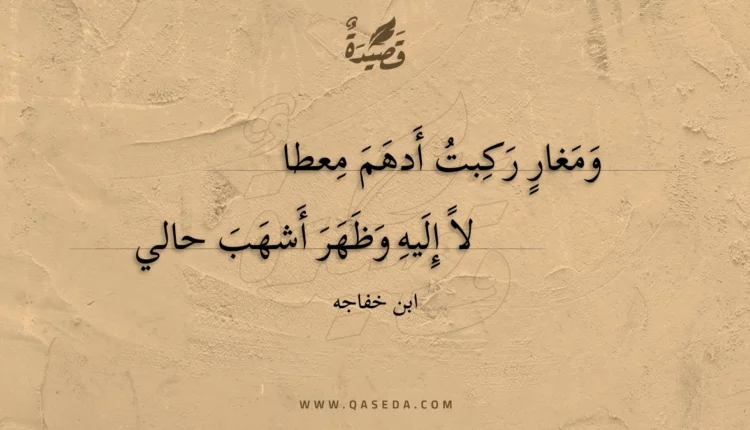 قَصِيدَةٌ
وَمَغارٍ رَكِبتُ أَدهَمَ مِعطا
لاً إِلَيهِ وَظَهَرَ أَشهَبَ حالي
ابن خفاجه
WWW.QASEDA.COM